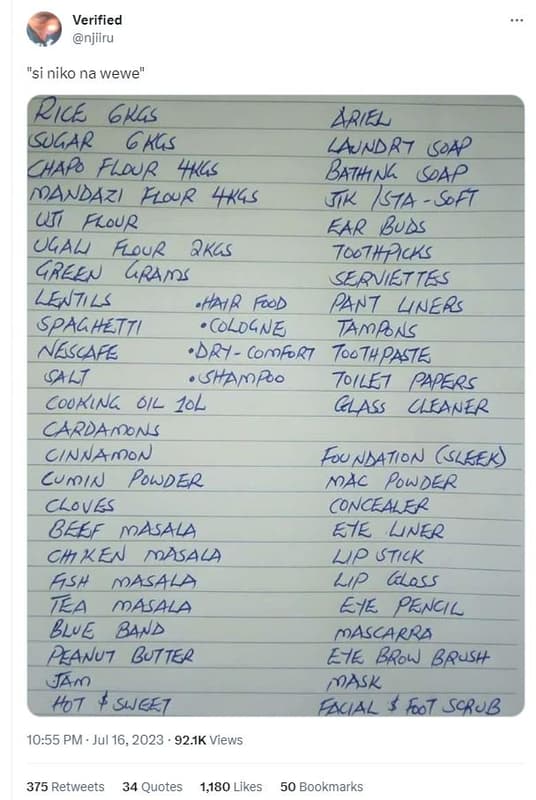 Verified
@njiiru
"si niko na wewe"
RICE 6KGS
SUGAR 6KGS
CHAPO FLOUR 4KGS
MANDAZI FLOUR 4KGS
UJI FLOUR
UGALI FLOUR 2KGS
GREEN GRAMS
LENTILS
SPAGHETTI
NESCAFE
SALT
COOKING OIL 10L
CARDAMONS
CINNAMON
CUMIN POWDER
CLOVES
BEEF MASALA
CHIKEN MASALA
FISH MASALA
TEA MASALA
BLUE BAND
PEANUT BUTTER
JAM
HOT $ SWEET
•HAIR FOOD
•COLOGNE
•DRY-COMFORT
•SHAMPOO
ARIEL
LAUNDRY SOAP
BATHING SOAP
JIK /STA-SOFT
EAR BUDS
TOOTHPICKS
SERVIETTES
PANT LINERS
TAMPONS
TOOTHPASTE
TOILET PAPERS
GLASS CLEANER
FOUNDATION (SLEEK)
MAC POWDER
CONCEALER
EYE LINER
LIP STICK
LIP GLOSS
EYE PENCIL
MASCARRA
EYE BROW BRUSH
MASK
FACIAL $ FOOT SCRUB
10:55 PM · Jul 16, 2023 · 92.1K Views
375 Retweets 34 Quotes 1,180 Likes 50 Bookmarks